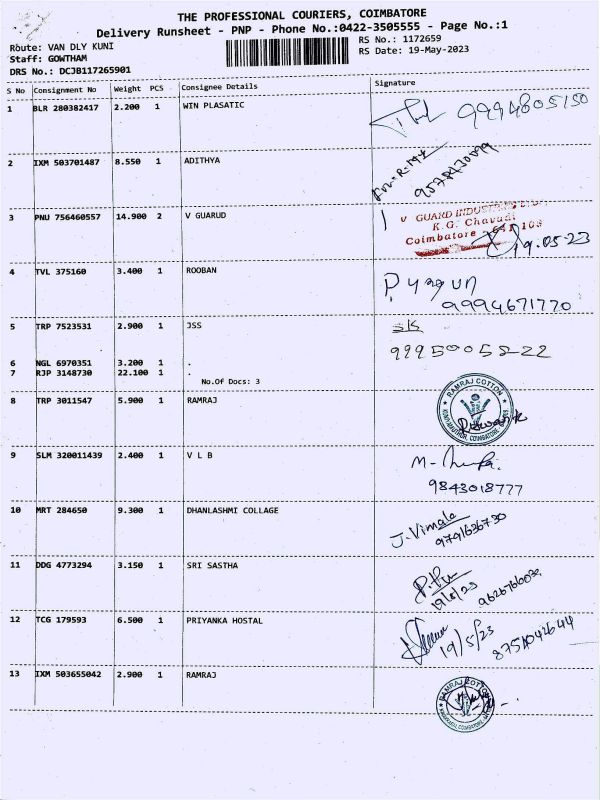 THE PROFESSIONAL COURIERS, COIMBATORE
Delivery Runsheet - PNP - Phone No.:0422-3505555 - Page No.:1
Route: VAN DLY KUNI RS No.: 1172659
Staff: GOWTHAM RS Date: 19-May-2023
DRS No.: DCJB117265901
S No Consignment No Weight PCS Consignee Details Signature
1 BLR 280382417 2.200 1 WIN PLASATIC 9994805150
2 IXM 503701487 8.550 1 ADITHYA
3 PNU 756460557 14.900 2 V GUARUD
V GUARD INDUSTRIES
K.G. Chavadi
Coimbatore
19.05.23
4 TVL 375160 3.400 1 ROOBAN
9994671770
5 TRP 7523531 2.900 1 JSS SK
9995005822
6 NGL 6970351 3.200 1 .
7 RJP 3148730 22.100 1 .
No.Of Docs: 3
8 TRP 3011547 5.900 1 RAMRAJ
RAMRAJ COTTON
COIMBATORE
9 SLM 320011439 2.400 1 V L B
9843018777
10 MRT 284650 9.300 1 DHANLASHMI COLLAGE
J. Vimala
9791636730
11 DDG 4773294 3.150 1 SRI SASTHA
19/5/23
12 TCG 179593 6.500 1 PRIYANKA HOSTAL
19/5/23 8754042644
13 IXM 503655042 2.900 1 RAMRAJ
RAMRAJ COTTON